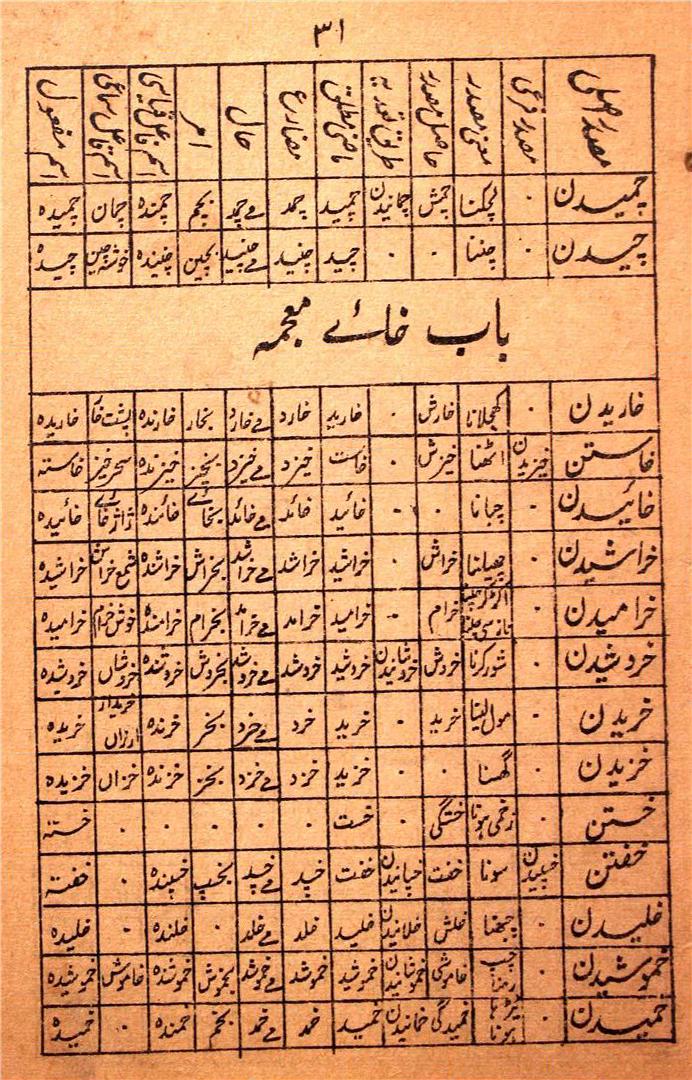 ۳۱
مصدر اصلی مصدر فرعی معنی مصدر حاصل مصدر طریق تعدیہ ماضی مطلق مضارع حال امر اسم فاعل قیاسی اسم فاعل سماعی اسم مفعول
چمیدن ۰ لچکنا چمش چمانیدن چمید چمد مے چمد بچم چمندہ چمان چمیدہ
چیدن ۰ چننا ۰ ۰ چید چنید مے چنید بچین چنندہ خوشہ چین چیدہ
باب خائے معجمہ
خاریدن ۰ کھجلانا خارش ۰ خارید خارد مے خارد بخار خارندہ پشت خار خاریدہ
خاستن خیزیدن اٹھنا خیزش ۰ خاست خیزد مے خیزد بخیز خیزندہ سحر خیز خاستہ
خائیدن ۰ چبانا ۰ ۰ خائید خائد مے خائد بخائے خائندہ ژاژ خائے خائیدہ
خراشیدن ۰ چھیلنا خراش ۰ خراشید خراشد مے خراشد بخراش خراشندہ خراشیدہ
خرامیدن ۰ خرام ۰ خرامید خرامد مے خرامد بخرام خرامندہ خوش خرام خرامیدہ
خروشیدن ۰ شور کرنا خروش خروشانیدن خروشید خروشد مے خروشد بخروش خروشندہ خروشاں خروشیدہ
خریدن ۰ مول لینا خرید ۰ خرید خرد مے خرد بخر خرندہ خریدار ارزاں خریدہ
خزیدن ۰ گھسنا ۰ ۰ خزید خزد مے خزد بخز خزندہ خزاں خزیدہ
خستن ۰ زخمی ہونا خستگی ۰ خست ۰ ۰ ۰ ۰ ۰ خستہ
خفتن خسپیدن سونا خفت خسپانیدن خفت خسپد مے خسپد بخسپ خسپندہ ۰ خفتہ
خلیدن ۰ چبھنا خلش خلانیدن خلید خلد مے خلد ۰ خلندہ ۰ خلیدہ
خموشیدن ۰ چپ رہنا خاموشی خموشانیدن خموشید خموشد مے خموشد بخموش خموشندہ خاموش خموشیدہ
خمیدن ۰ ٹیڑھا ہونا خمیدگی خمانیدن خمید خمد مے خمد بخم خمندہ ۰ خمیدہ